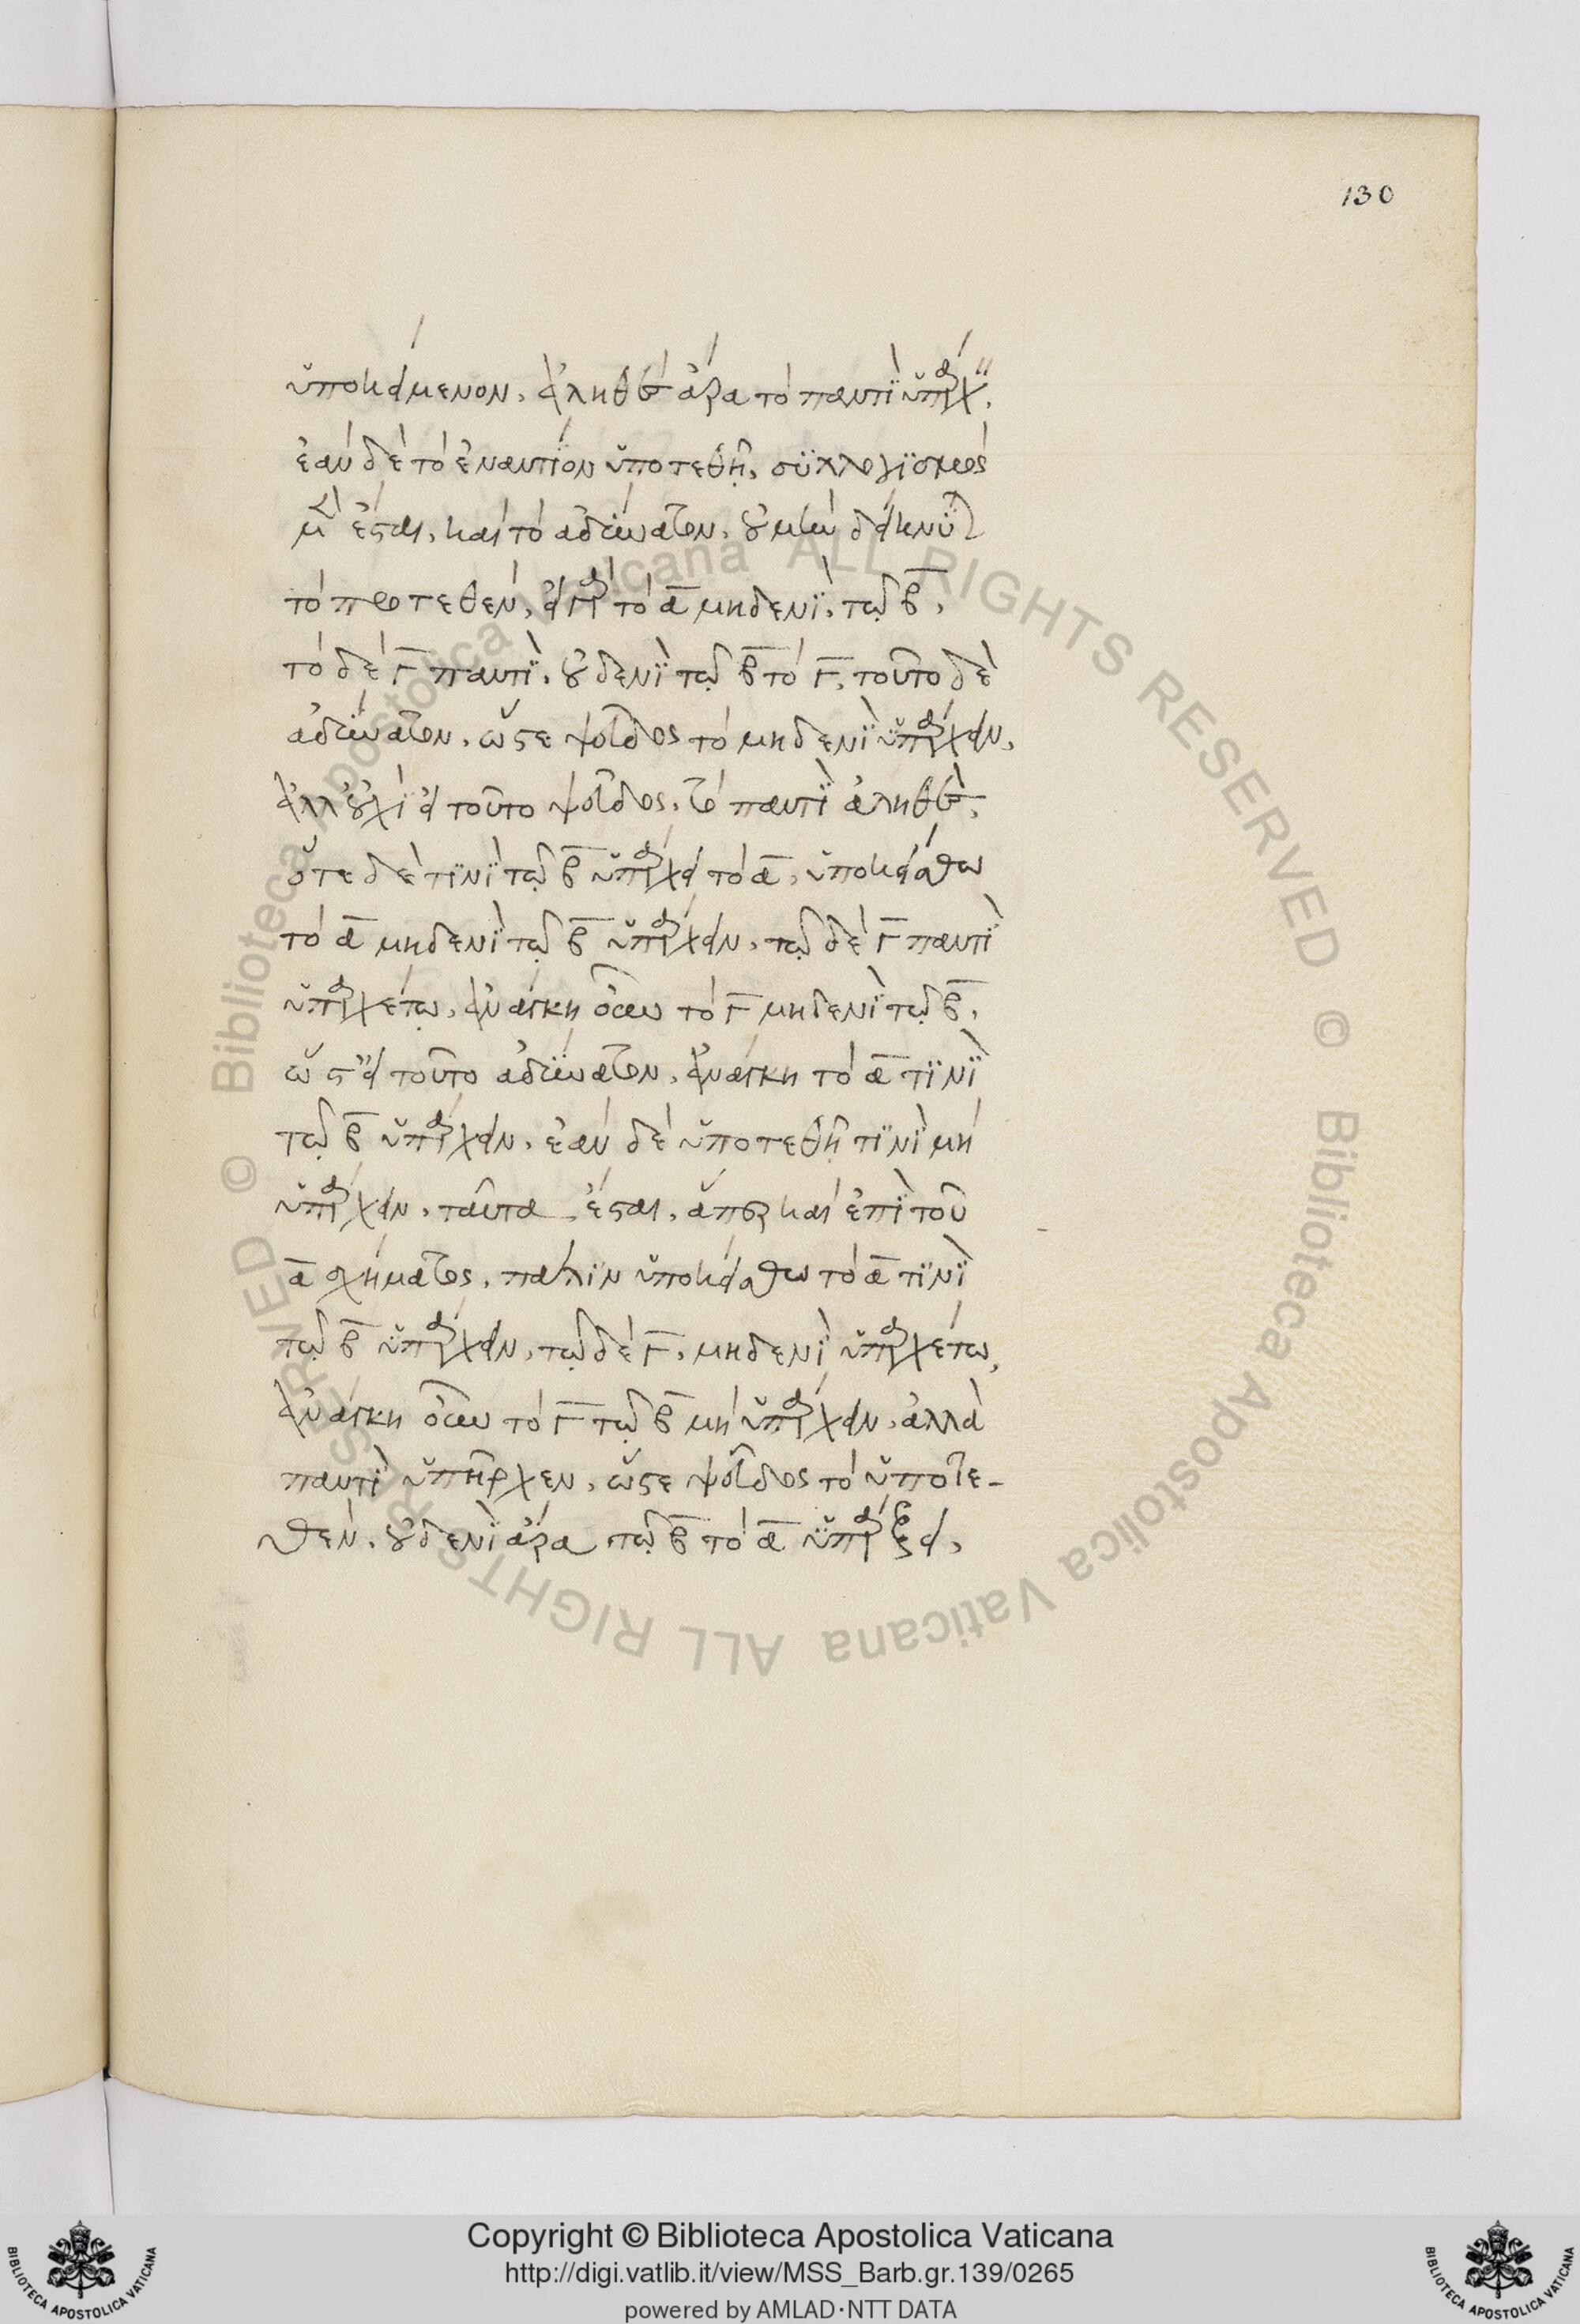 130
ὑποκείμενον, ἀληθὲς ἄρα τὸ παντὶ ὑπάρχ.
ἐὰν δὲ τὸ ἐναντίον ὑποτεθῆ, συλλογισμὸς
μὲν ἔσται, καὶ τὸ ἀδύνατον, οὐ μὴν δείκνυται
τὸ προτεθέν, εἰ γὰρ τὸ α μηδενὶ, τῶ β,
τὸ δὲ γ παντὶ, οὐδενὶ τῶ β τὸ γ, τοῦτο δὲ
ἀδύνατον, ὥστε ψεῦδος τὸ μηδενὶ ὑπάρχειν,
ἀλλ οὐχὶ εἰ τοῦτο ψεῦδος, τὸ παντὶ ἀληθὲς,
ὅτε δὲ τινὶ τῶ β ὑπάρχει τὸ α, ὑποκείσθω
τὸ α μηδενὶ τῶ β ὑπάρχειν, τῶ δὲ γ παντὶ
ὑπαρχέτω, ἀνάγκη οὖν τὸ γ μηδενὶ τῶ β,
ὥστ εἰ τοῦτο ἀδύνατον, ἀνάγκη τὸ α τινὶ
τῶ β ὑπάρχειν, ἐὰν δὲ ὑποτεθῆ τινὶ μὴ
ὑπάρχειν, ταῦτα ἔσται, ἅπερ καὶ ἐπὶ τοῦ
α σχήματος, πάλιν ὑποκείσθω τὸ α τινὶ
τῶ β ὑπάρχειν, τῶ δὲ γ, μηδενὶ ὑπαρχέτω,
ἀνάγκη οὖν τὸ γ τῶ β μὴ ὑπάρχειν, ἀλλὰ
παντὶ ὑπῆρχεν, ὥστε ψεῦδος τὸ ὑποτε-
θέν, οὐδενὶ ἄρα τῶ β τὸ α ὑπάρξει,
© Biblioteca Apostolica Vaticana ALL RIGHTS RESERVED © Biblioteca Apostolica Vaticana ALL RIGHTS RESERVED
Copyright © Biblioteca Apostolica Vaticana
http://digi.vatlib.it/view/MSS_Barb.gr.139/0265
powered by AMLAD·NTT DATA
BIBLIOTECA APOSTOLICA VATICANA
BIBLIOTECA APOSTOLICA VATICANA